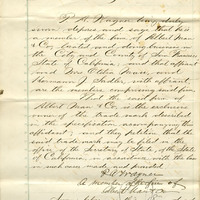 P. A. Wagner being duly
sworn deposes and says that he is
a member of the firm of Albert Mau
& Co, located and doing business in
the City and County of San Francisco
State of California, and that affiant
and Mrs Albin Mau, and
Sadler, with affiant,
are the members comprising said firm,
That the said firm of
Albert Mau & Co, is the owner
of the trade mark described
in the specification accompanying this
affidavit; and they petition that the
said trade mark may be filed in the
office of the Secretary of State, of the State
of California, in accordance with the law
in such case made and provided
P. A. Wagner
A member of the firm of
Albert Mau & Co